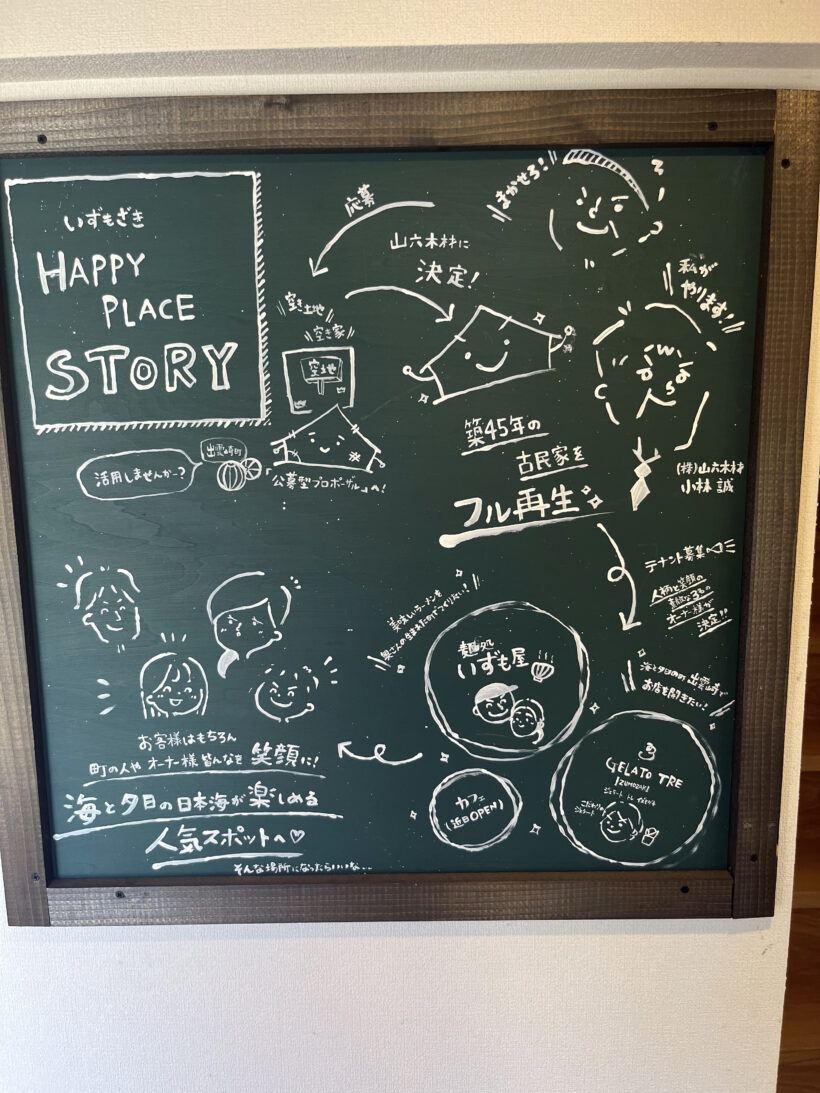 いずもざき
HAPPY
PLACE
STORY
活用しませんか〜?
出雲崎町
空き土地
空き家
空地
「公募型プロポーザル」へ!
応募
山六木材に
決定!
まかせろ!
私が
やります!
(株)山六木材
小林 誠
築45年の
古民家を
フル再生
テナント募集
人柄と笑顔の
素敵な3名の
オーナー様が
決定!!
美味しいラーメンを
奥さんの生まれた町でつくりたい!
麺処
いずも屋
海と夕日の町 出雲崎で
お店を開きたい!
GELATO TRE
IZUMOZAKI
ジェラート トレ イズモザキ
こだわりの
ジェラート
カフェ
(近日OPEN)
お客様はもちろん
町の人や オーナー様 皆んなを 笑顔に!
海と夕日の日本海が楽しめる
人気スポットへ♡
そんな場所になったらいいな...